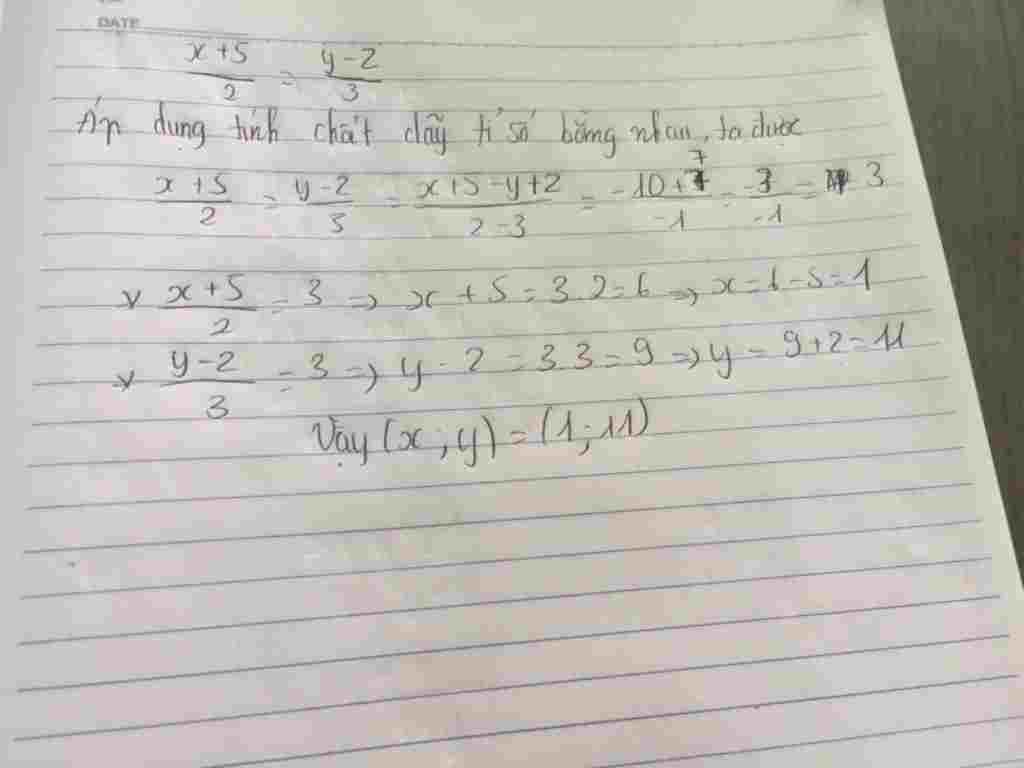 DATE
x+5/2 = y-2/3
Áp dụng tính chất dãy tỉ số bằng nhau, ta được
x+5/2 = y-2/3 = x+5-y+2/2-3 = -10+7/-1 = -3/-1 = 3
x+5/2 = 3 => x+5=3.2=6 => x=6-5=1
y-2/3 = 3 => y-2=3.3=9 => y=9+2=11
Vậy (x;y)=(1;11)